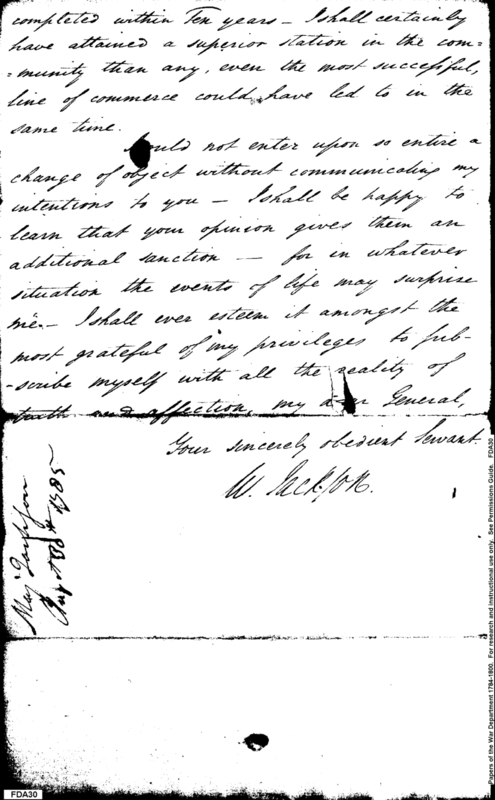 completed within Ten years – I shall certainly
have attained a superior station in the com=
=munity than any, even the most successful,
line of commerce could have led to in the
same time.
would not enter upon so entire a
change of object without communicating my
intentions to you – I shall be happy to
learn that your opinion gives them an
additional sanction – for in whatever
situation the events of life may surprise
me – I shall ever esteem it amongst the
most grateful of my privileges to sub-
-scribe myself with all the reality of
truth and affection, my dear General,
Your sincerely obedient Servant.
W. Jackson.
Maj Jackson
1785
Papers of the War Department 1784-1800. For research and instructional use only. See Permissions Guide. FDA30
FDA30